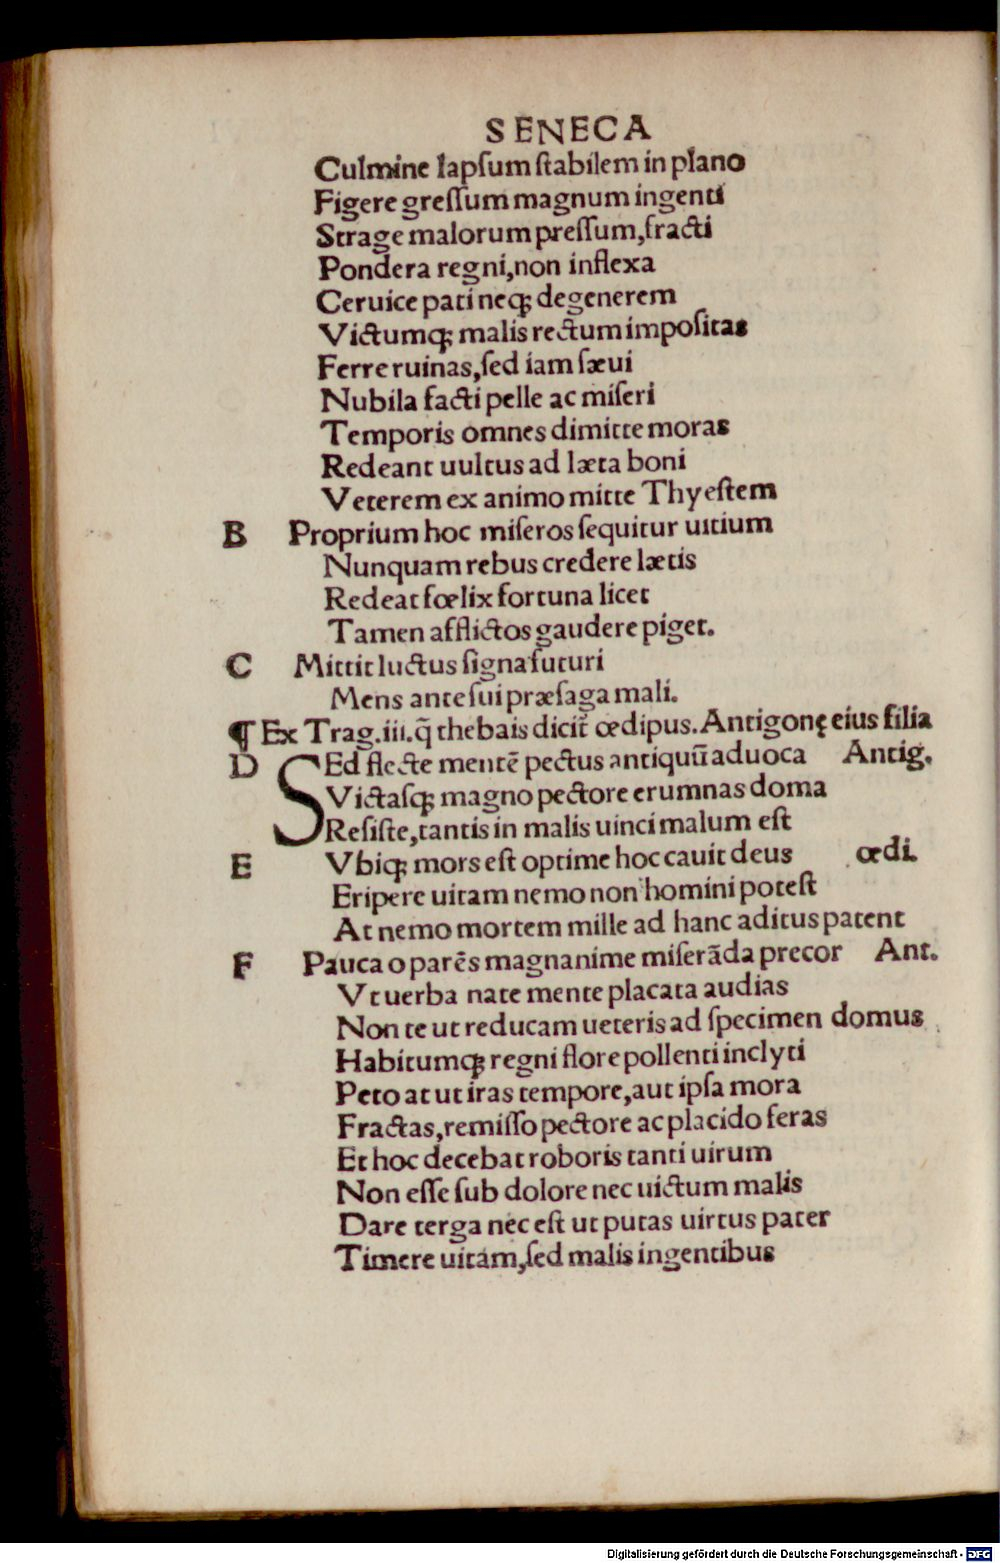 SENECA
Culmine lapsum stabilem in plano
Figere gressum magnum ingenti
Strage malorum pressum, fracti
Pondera regni, non inflexa
Ceruice pati neqꝫ degenerem
Victumqꝫ malis rectum impositas
Ferre ruinas, sed iam sæui
Nubila facti pelle ac miseri
Temporis omnes dimitte moras
Redeant uultus ad læta boni
Veterem ex animo mitte Thyestem
B Proprium hoc miseros sequitur uitium
Nunquam rebus credere lætis
Redeat fœlix fortuna licet
Tamen afflictos gaudere piget.
C Mittit luctus signa futuri
Mens ante sui præsaga mali.
¶ Ex Trag.iii. q̃ thebais dicit̃ œdipus. Antigonę eius filia
D SEd flecte mentē pectus antiquū aduoca Antig.
Victasqꝫ magno pectore erumnas doma
Resiste, tantis in malis uinci malum est
E Vbiqꝫ mors est optime hoc cauit deus œdi.
Eripere uitam nemo non homini potest
At nemo mortem mille ad hanc aditus patent
F Pauca o parēs magnanime miserāda precor Ant.
Vt uerba nate mente placata audias
Non te ut reducam ueteris ad specimen domus
Habitumqꝫ regni flore pollenti inclyti
Peto at ut iras tempore, aut ipsa mora
Fractas, remisso pectore ac placido feras
Et hoc decebat roboris tanti uirum
Non esse sub dolore nec uictum malis
Dare terga nec est ut putas uirtus pater
Timere uitam, sed malis ingentibus
Digitalisierung gefördert durch die Deutsche Forschungsgemeinschaft - DFG